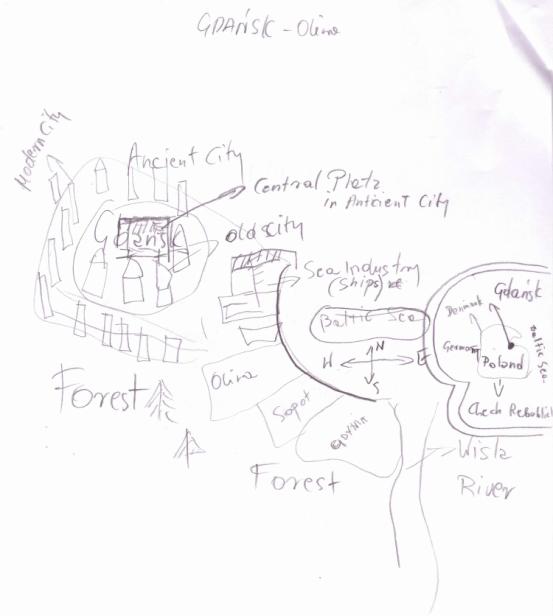 GDAŃSK - Oliwa
Modern City
Ancient City
Central Platz
in Antcient City
Gdańsk
old city
Sea Industry
(Ships)
Baltic Sea
N
W
E
S
Gdańsk
Denmark
Baltic Sea
Germany
Poland
Oliwa
Forest
Sopot
GDYNIA
Forest
Wisla
River